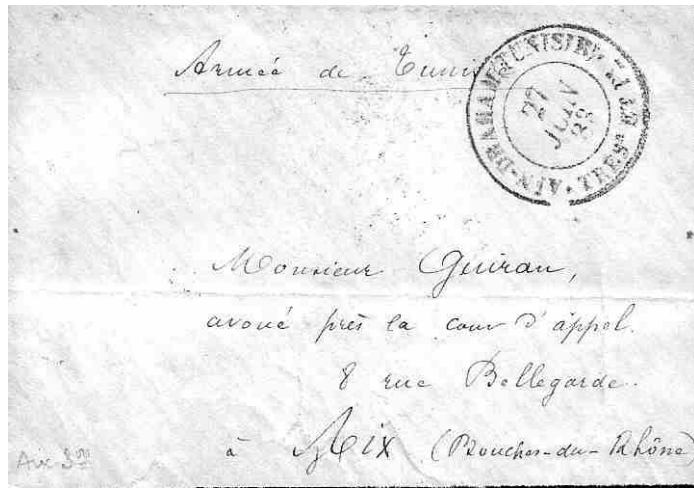 Armée de Tunis
AIN-DRAHAM (TUNISIE)
TRES
27
JUIN
83
Monsieur Guiran,
avoué près la cour d'appel.
8 rue Bellegarde.
à Aix (Bouches-du-Rhône)